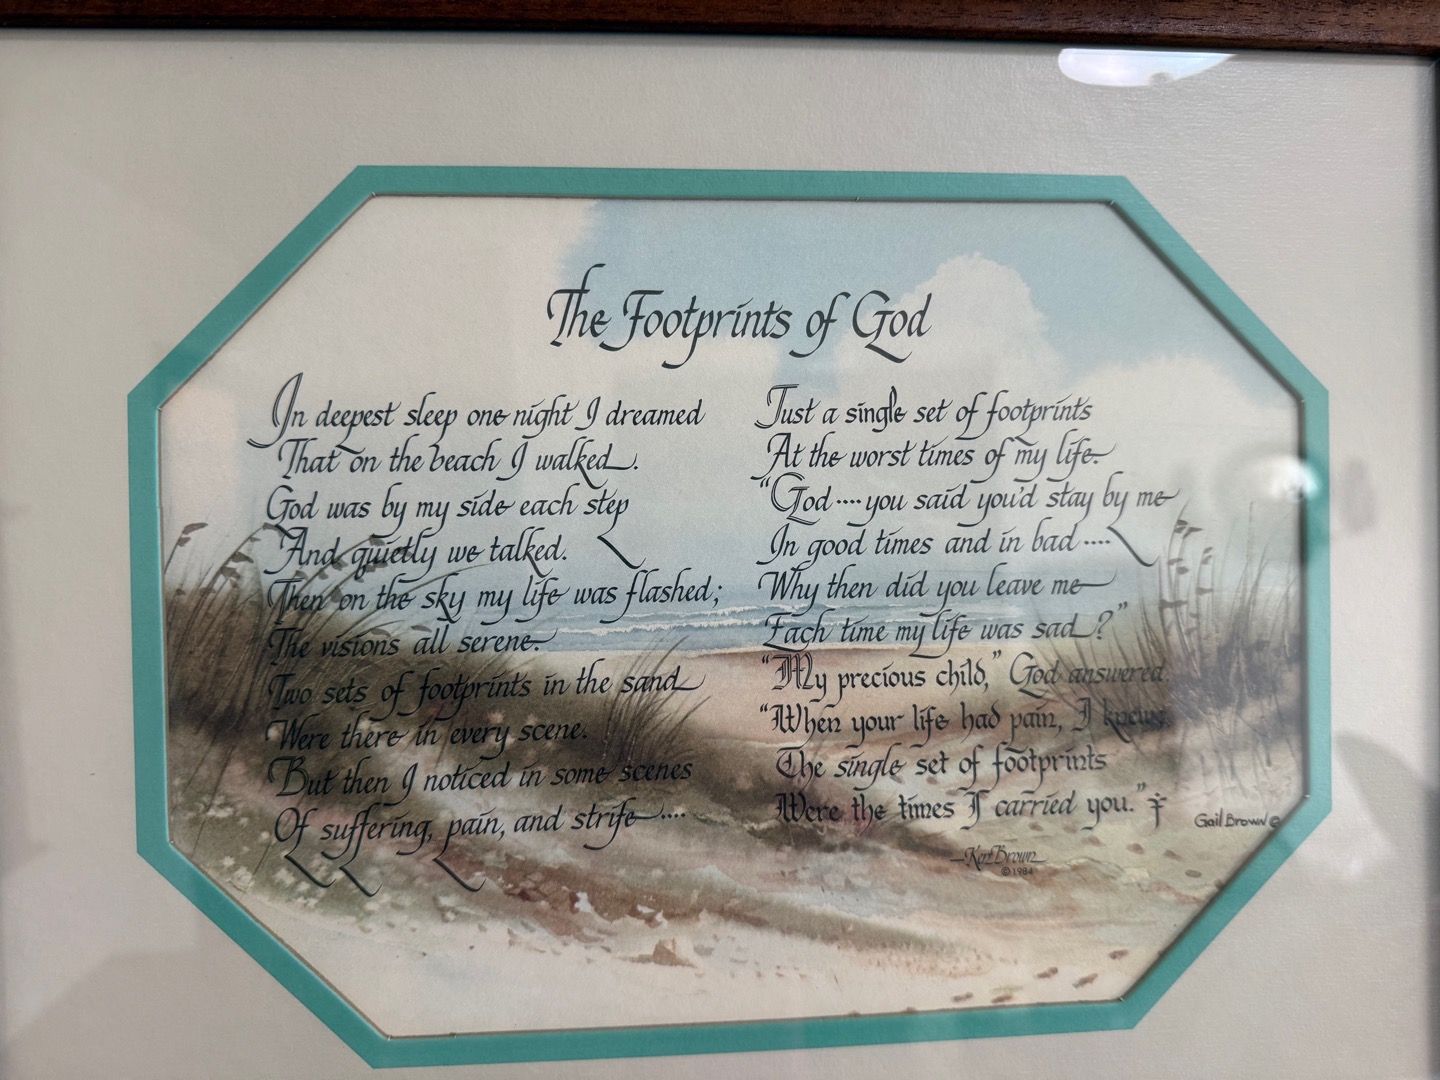 The Footprints of God
In deepest sleep one night I dreamed
That on the beach I walked.
God was by my side each step
And quietly we talked.
Then on the sky my life was flashed;
The visions all serene.
Two sets of footprints in the sand
Were there in every scene.
But then I noticed in some scenes
Of suffering, pain, and strife....
Just a single set of footprints
At the worst times of my life.
"God....you said you'd stay by me
In good times and in bad....
Why then did you leave me
Each time my life was sad?"
"My precious child," God answered.
"When your life had pain, I knew.
The single set of footprints
Were the times I carried you."
Gail Brown ©
—Ken Brown
©1984